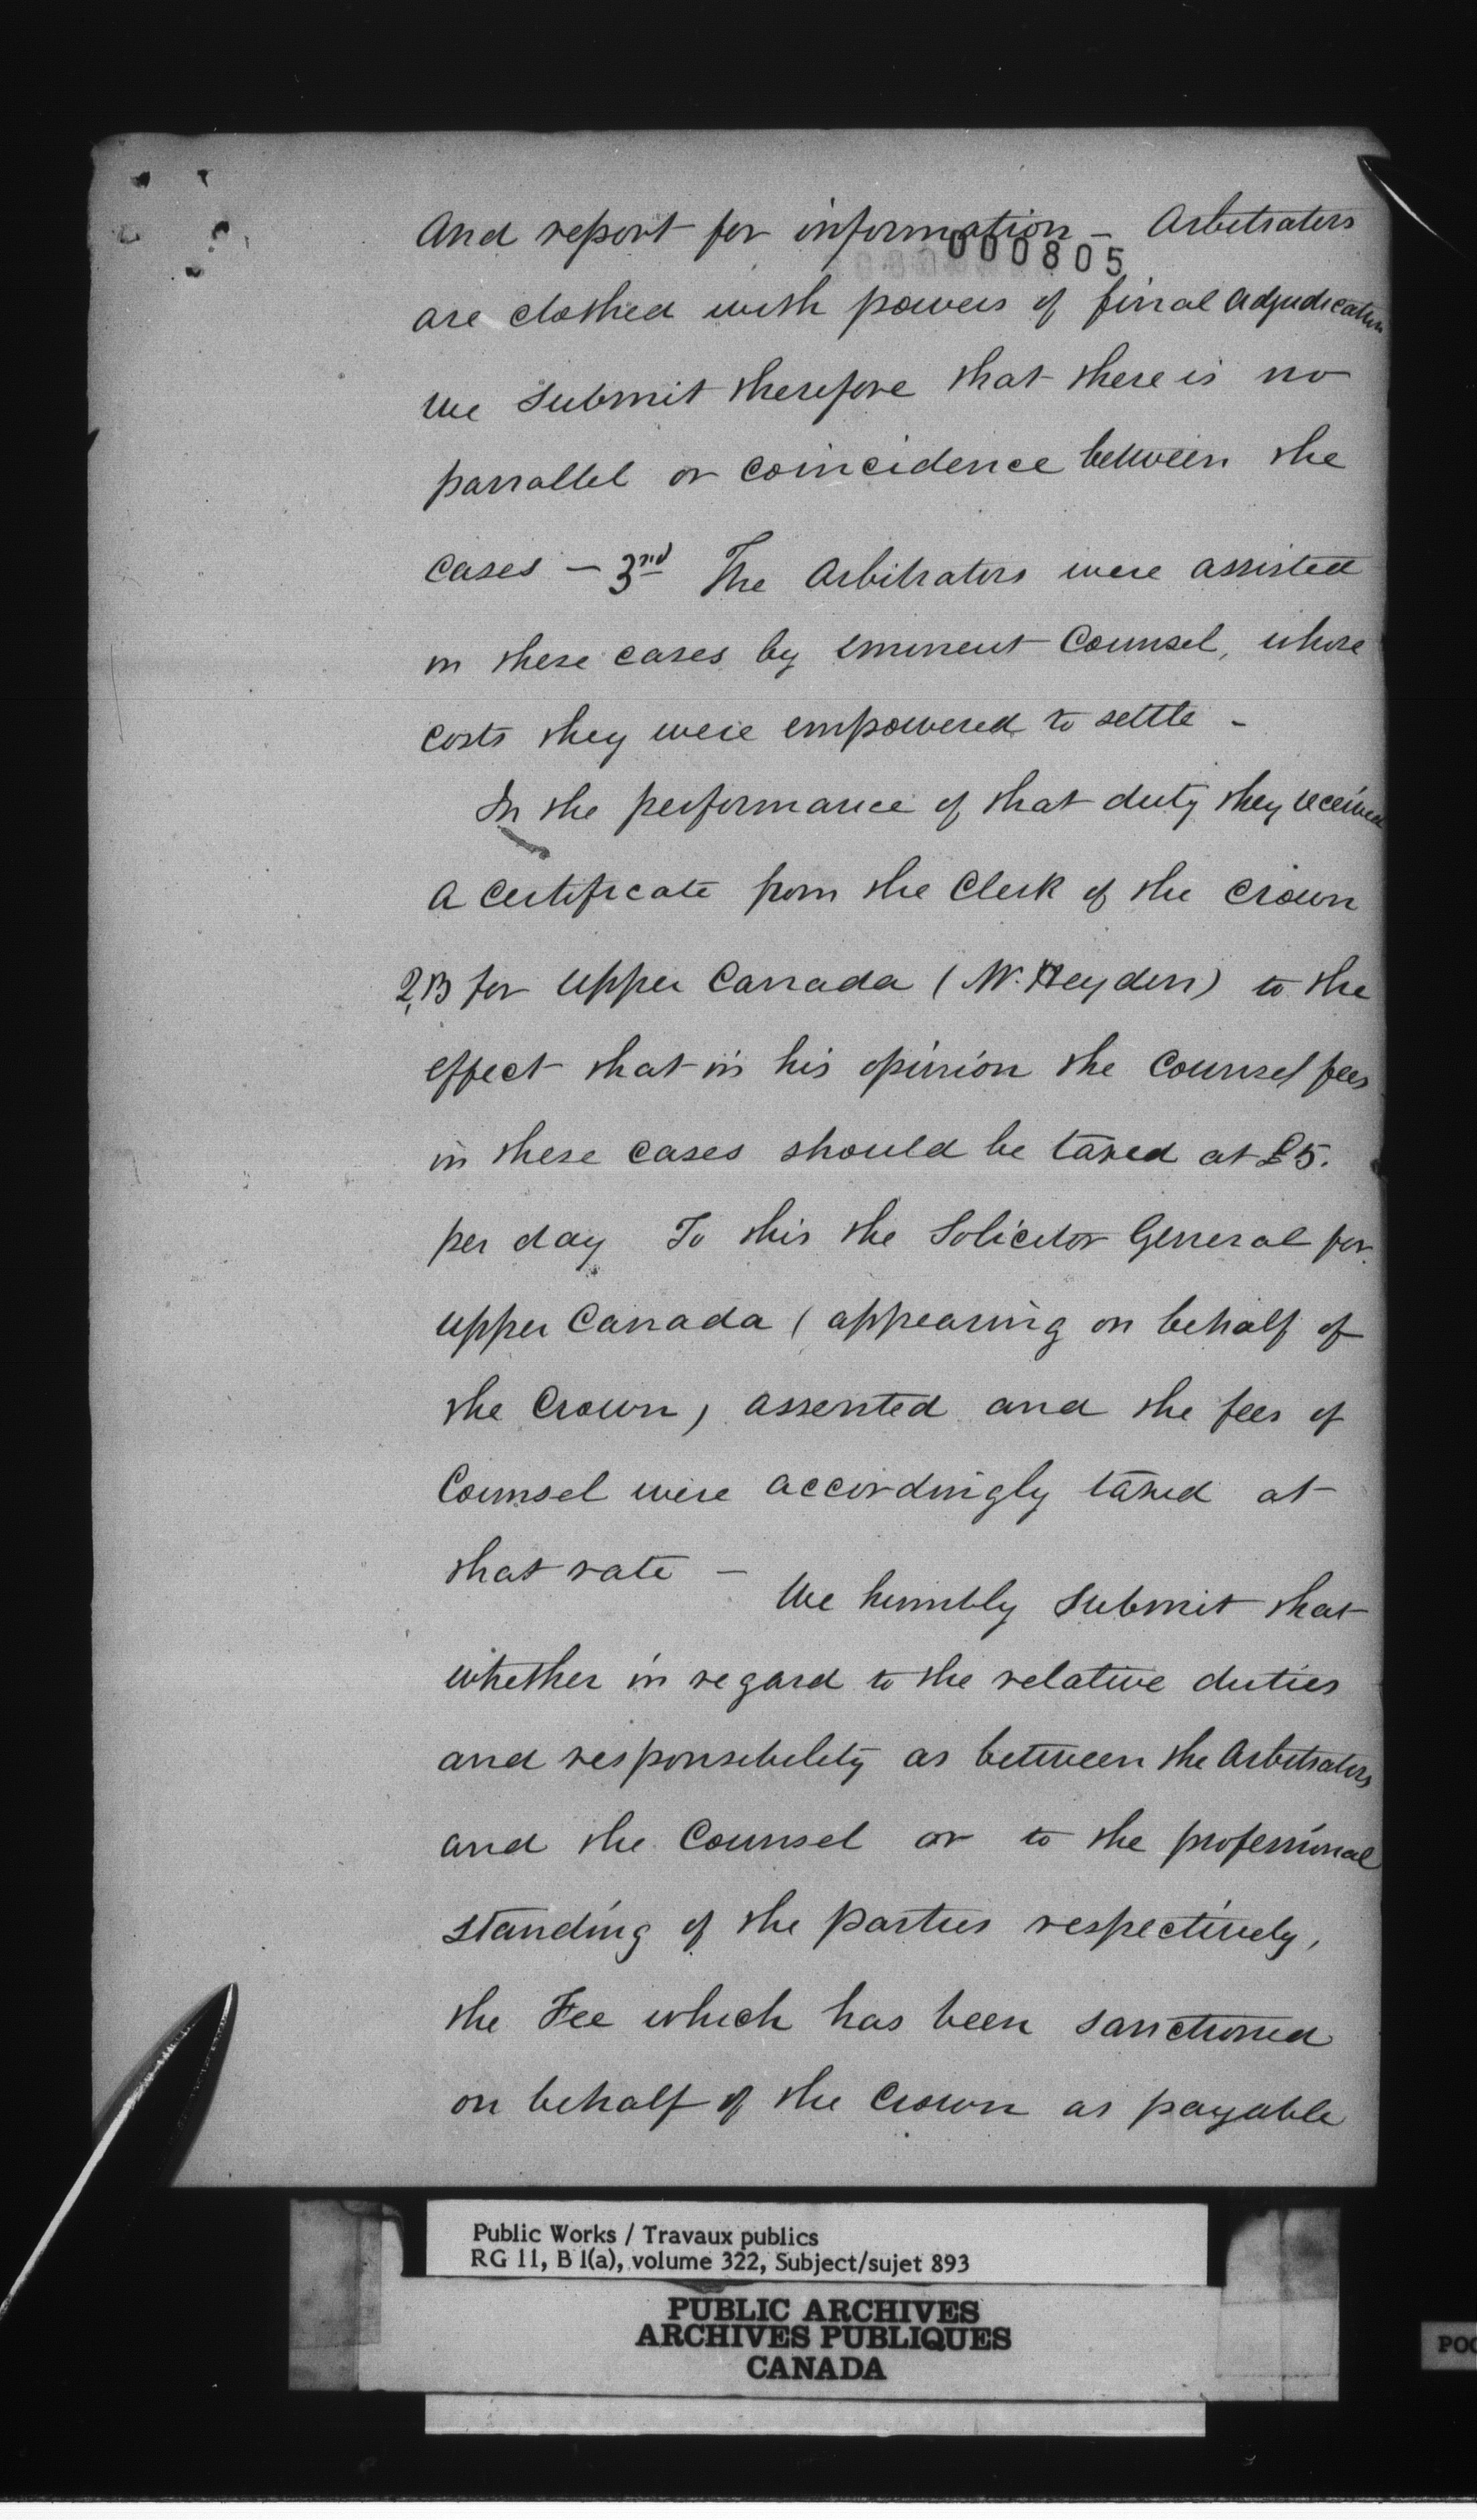 And report for information – Arbitrators
000805
are clothed with powers of final adjudication
We submit therefore that there is no
parrallel or coincidence between the
cases – 3rd The Arbitrators were assisted
in these cases by eminent Counsel, whose
costs they were empowered to settle –
In the performance of that duty they received
a certificate from the Clerk of the Crown
Q,B for Upper Canada (Mr. Heyden) to the
effect that in his opinion the Counsel fees
in these cases should be taxed at £5.
per day To this the Solicitor General for
Upper Canada (appearing on behalf of
the Crown) assented and the fees of
Counsel were accordingly taxed at
that rate –
We humbly submit that
whether in regard to the relative duties
and responsibility as between the Arbitrators
and the Counsel or to the professional
standing of the parties respectively,
the Fee which has been sanctioned
on behalf of the Crown as payable
Public Works / Travaux publics
RG 11, B 1(a), volume 322, Subject/sujet 893
PUBLIC ARCHIVES
ARCHIVES PUBLIQUES
CANADA